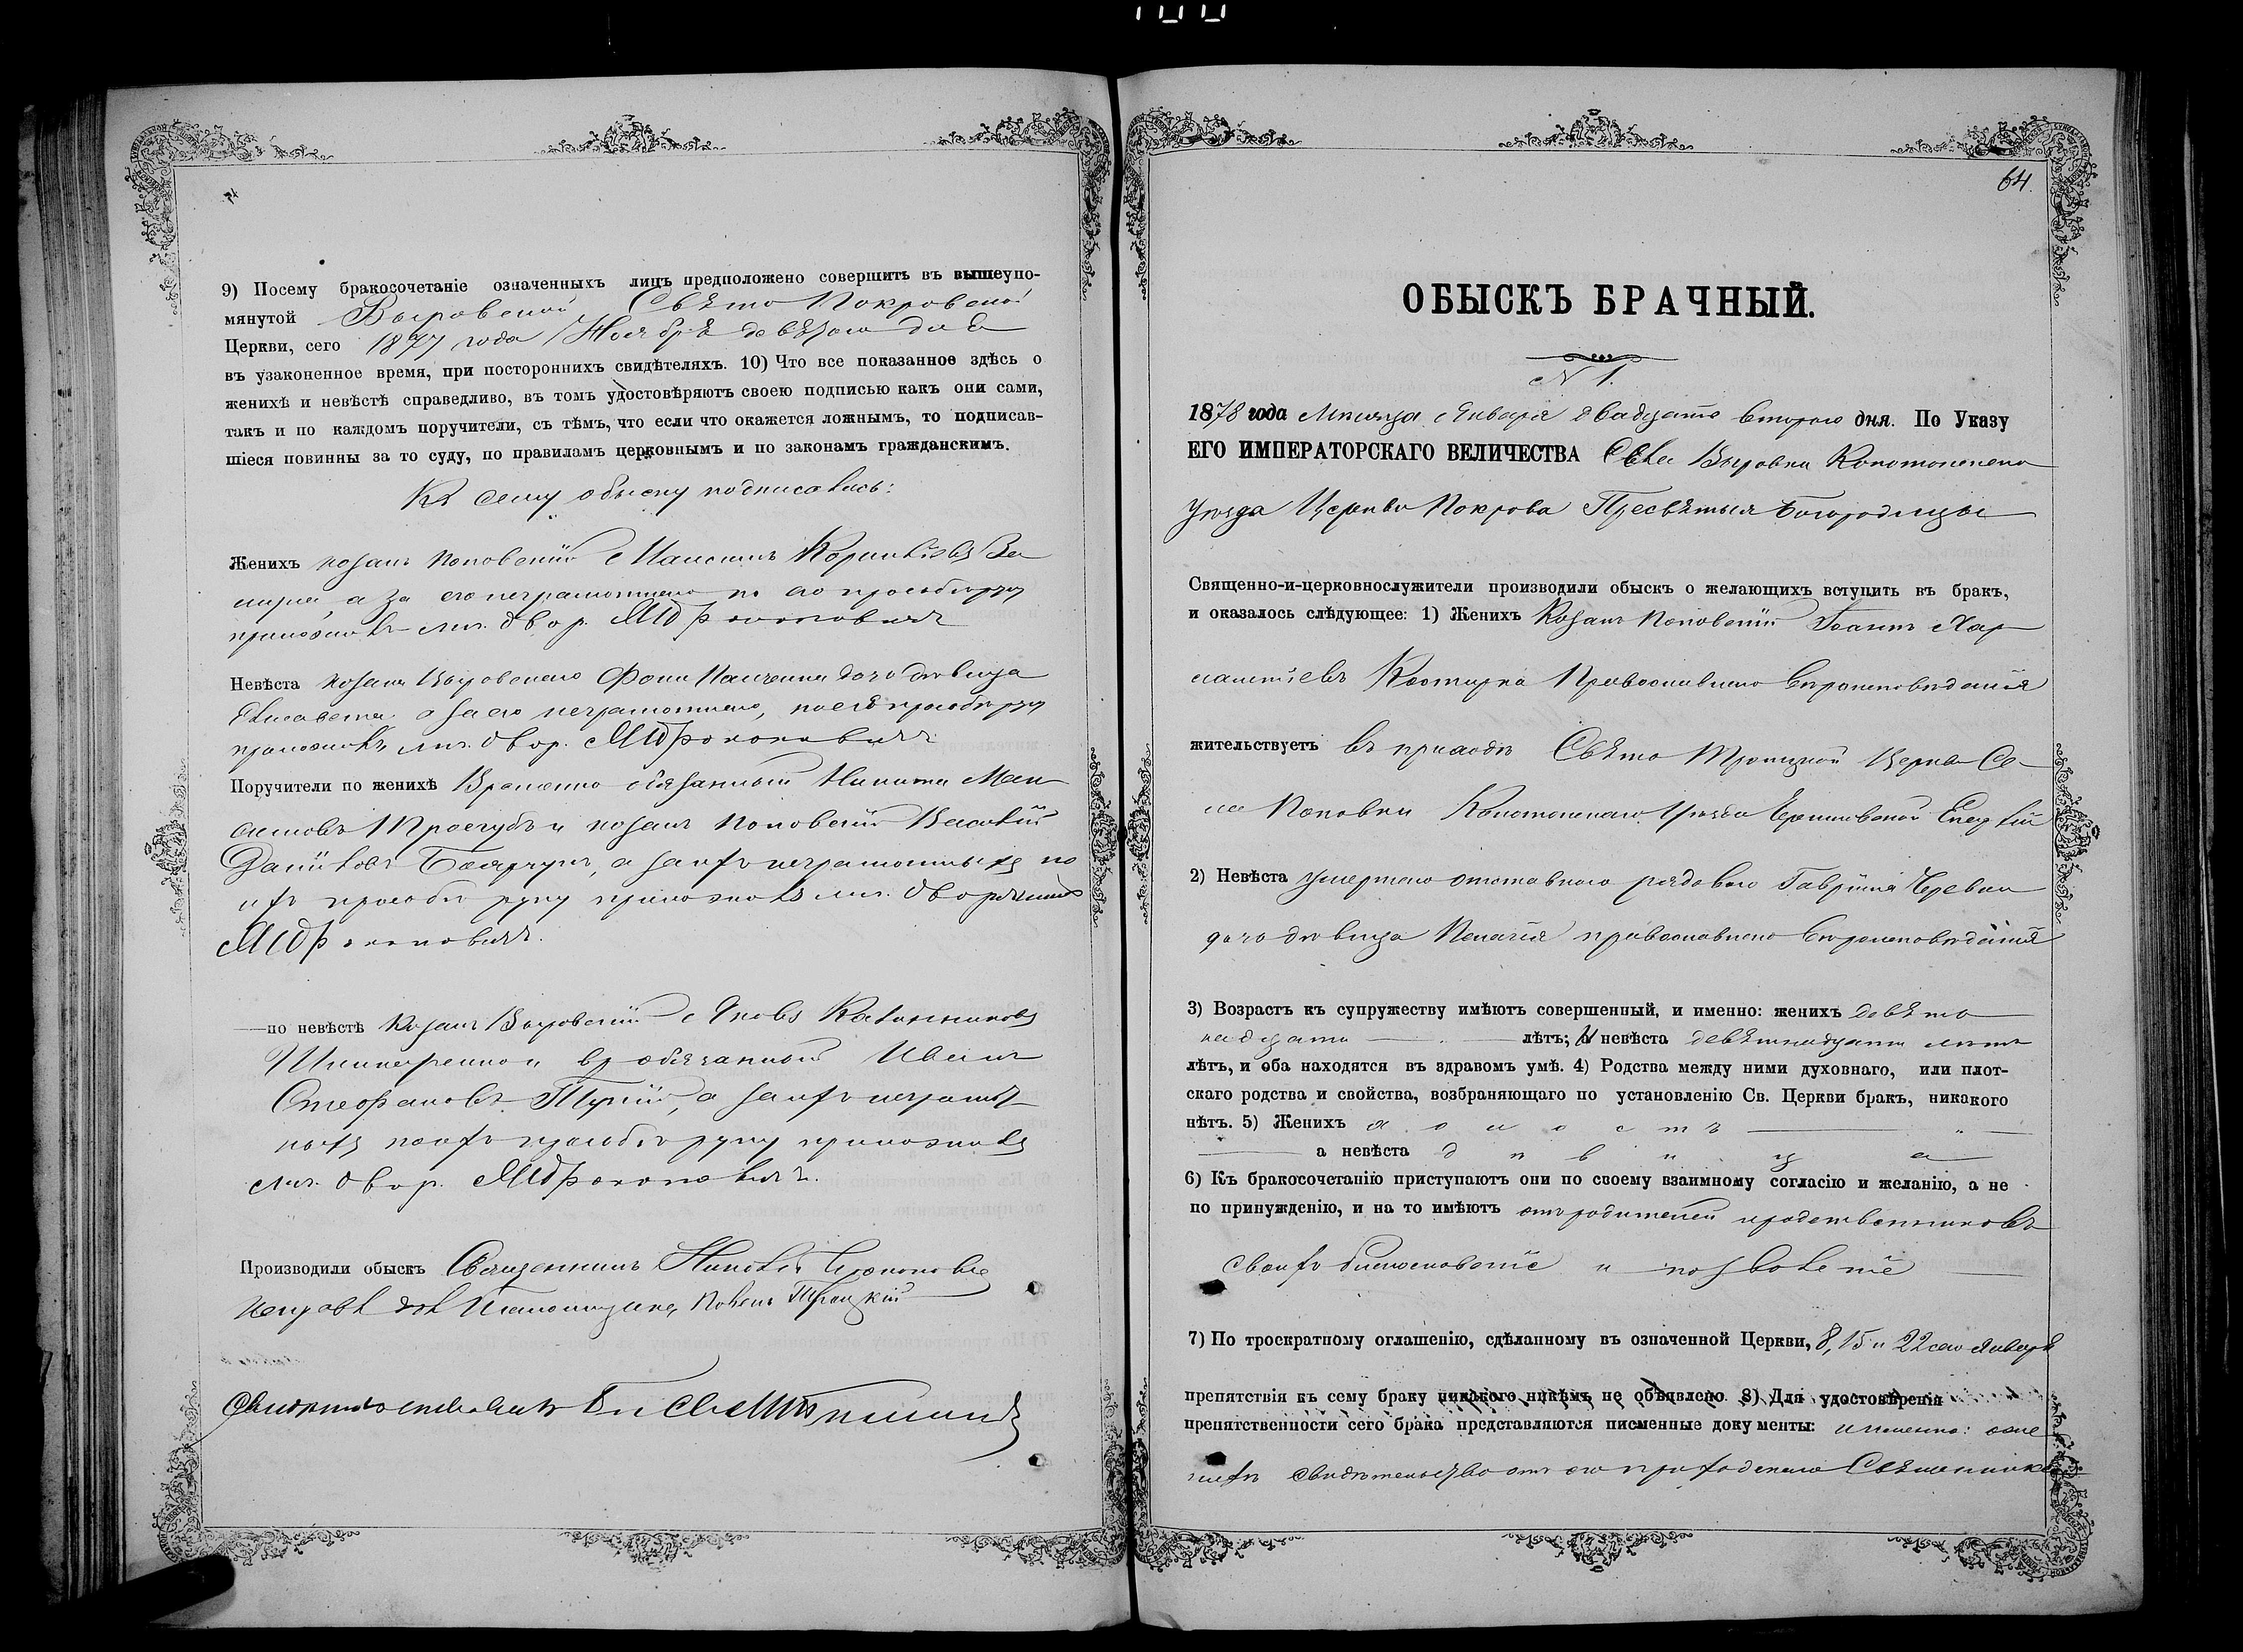 9) Посему бракосочетаніе означенныхъ лицъ предположено совершить въ вышеупо-
мянутой Выровской Свято Покровской
Церкви, сего 1877 года Ноября девятого дня
въ узаконенное время, при постороннихъ свидѣтеляхъ. 10) Что все показанное здѣсь о
женихѣ и невѣстѣ справедливо, въ томъ удостовѣряютъ своею подписью какъ они сами,
такъ и по каждомъ поручители, съ тѣмъ, что если что окажется ложнымъ, то подписав-
шіеся повинны за то суду, по правиламъ церковнымъ и по законамъ гражданскимъ.
Къ сему обыску подписались:
Женихъ козакъ Поповскій Максимъ
а за его неграмотного по его прозбѣ руку
приложилъ лич. двор.
Невѣста козака Выровского дочь дѣвица
Елисавета а за ею неграмотную, по ея прозбѣ руку
приложилъ лич. двор.
Поручители по женихѣ Временно обязанный Никита
козакъ Поповскій Василій
Даніиловъ а за ихъ неграмотныхъ по
ихъ прозбѣ руку приложилъ лич. дворянинъ
по невѣстѣ козакъ Выровскій Яковъ
вр. обязанный Иванъ
Стефановъ а за ихъ неграмот-
ныхъ по ихъ прозбѣ руку приложилъ
лич. двор.
Производили обыскъ Священникъ
Троицкій
64.
ОБЫСКЪ БРАЧНЫЙ.
N 1.
1878 года Мѣсяца Января двадцать второго дня. По Указу
ЕГО ИМПЕРАТОРСКАГО ВЕЛИЧЕСТВА Села Выровки Конотопского
уѣзда Церкви Покрова Пресвятыя Богородицы
Священно-и-церковнослужители производили обыскъ о желающихъ вступить въ бракъ,
и оказалось слѣдующее: 1) Женихъ Козакъ Поповскій Іоаннъ Хар-
лампіевъ Костирка Православного вѣроисповѣданія
жительствуетъ въ приходѣ Свято Троицкой Церкви Се-
ла Поповки Конотопскаго Уѣзда Черниговской Епархіи
2) Невѣста умершего отставного рядового Гавріила
дочь дѣвица Пелагія православного вѣроисповѣданія
3) Возрастъ къ супружеству имѣютъ совершенный, и именно: женихъ девят-
надцати лѣтъ; а невѣста девятнадцати лѣтъ
лѣтъ, и оба находятся въ здравомъ умѣ. 4) Родства между ними духовнаго, или плот-
скаго родства и свойства, возбраняющаго по установленію Св. Церкви бракъ, никакого
нѣтъ. 5) Женихъ холостъ
а невѣста дѣвица
6) Къ бракосочетанію приступаютъ они по своему взаимному согласію и желанію, а не
по принужденію, и на то имѣютъ отъ родителей и родственниковъ
своихъ благословеніе и позволеніе
7) По троекратному оглашенію, сдѣланному въ означенной Церкви, 8, 15 и 22 сего Января
препятствія къ сему браку никакого никѣмъ не объявлено. 8) Для удостовѣренія
препятственности сего брака представляются писменные документы: именно:
свидетельство отъ его приходского Священника